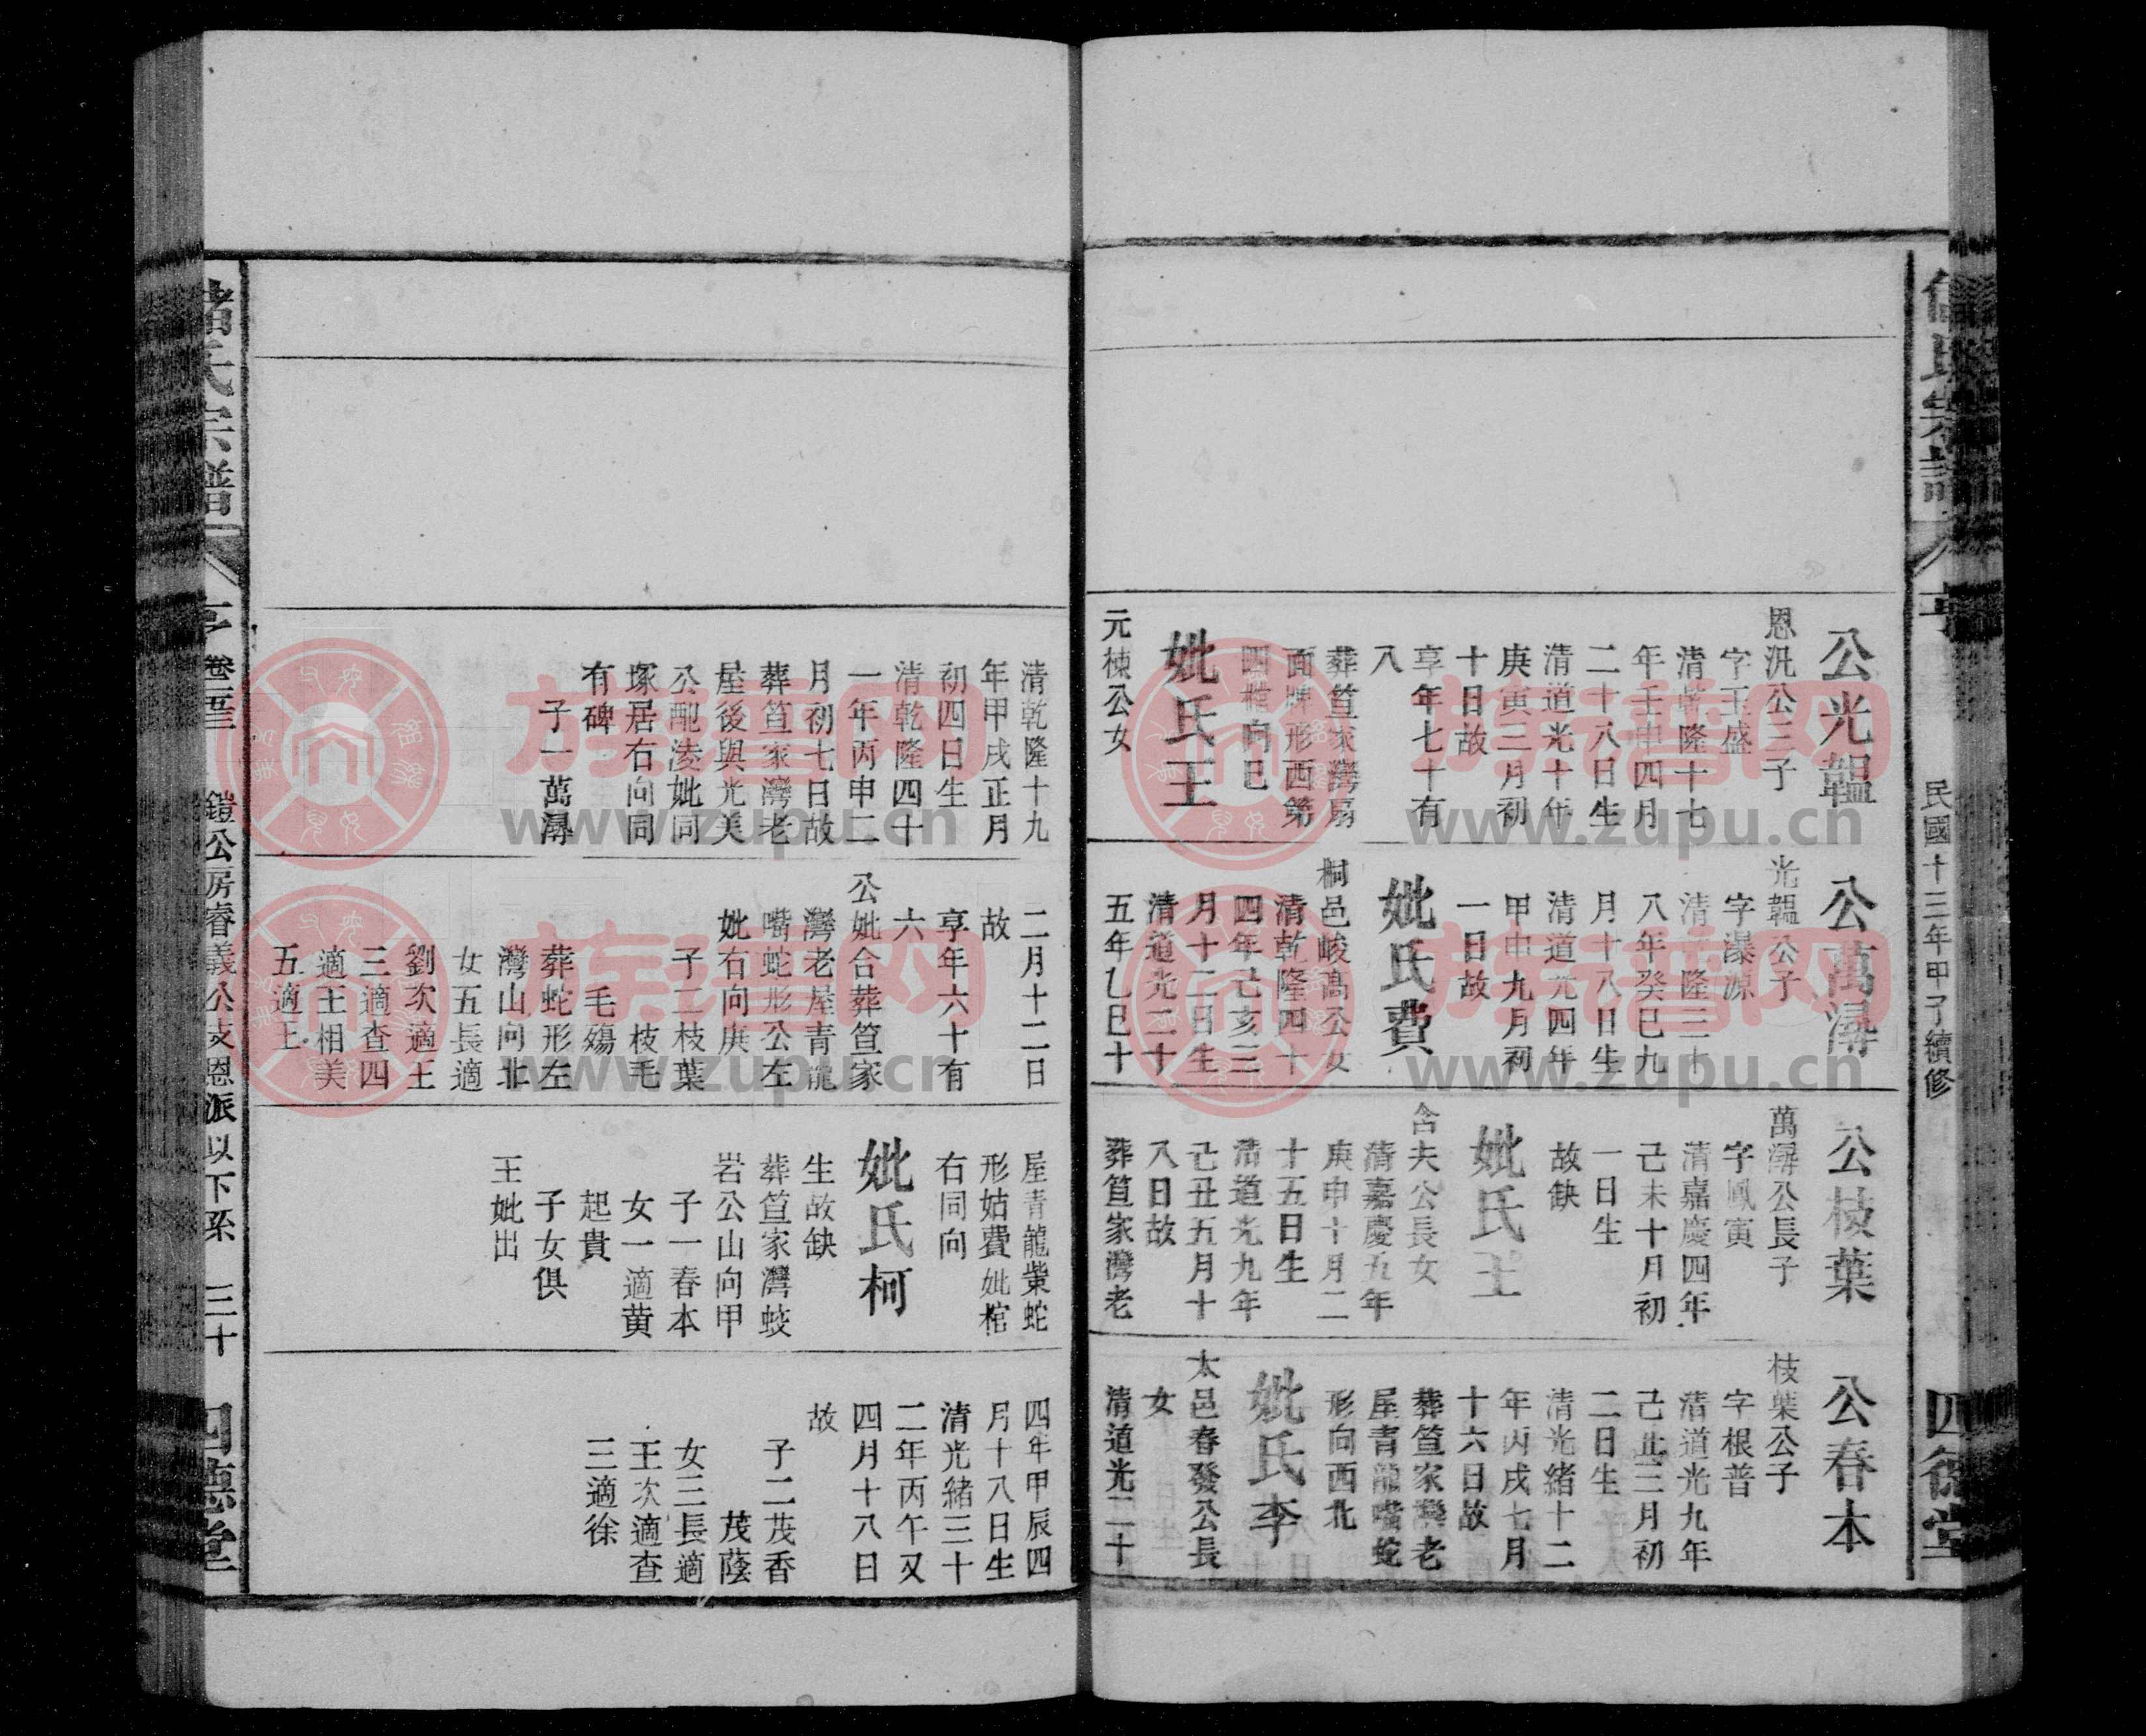 民國十三年甲子續修
四德堂
公光韞
恩汎公三子
字玉盛
清乾隆十七
年壬申四月
二十八日生
清道光十年
庚寅三月初
十日故
享年七十有
八
葬笪家灣扇
面牌形西第
四棺向巳
妣氏王
元棟公女
清乾隆十九
年甲戌正月
初四日生
清乾隆四十
一年丙申二
月初七日故
葬笪家灣老
屋後與光美
公配淩妣同
塚居右向同
有碑
子一萬潯
公萬潯
光韞公子
字瀑源
清乾隆三十
八年癸巳九
月十八日生
清道光四年
甲申九月初
一日故
妣氏費
桐邑峻高公女
清乾隆四十
四年己亥三
月十二日生
清道光二十
五年乙巳十
二月十二日
故
享年六十有
六
公妣合葬笪家
灣老屋青龍
嘴蛇形公左
妣右向庚
子二枝葉
枝毛
毛殤
葬蛇形左
灣山向北
女五長適
劉次適王
三適查四
適王相美
五適王
公枝葉
萬潯公長子
字鳳寅
清嘉慶四年
己未十月初
一日生
故缺
妣氏王
含夫公長女
清嘉慶五年
庚申十月二
十五日生
清道光九年
己丑五月十
八日故
葬笪家灣老
屋青龍嘴蛇
形姑費妣棺
右同向
妣氏柯
生故缺
葬笪家灣蛟
岩公山向甲
子一春本
女一適黄
起貴
子女俱
王妣出
公春本
枝葉公子
字根普
清道光九年
己丑三月初
二日生
清光緒十二
年丙戌七月
十六日故
葬笪家灣老
屋青龍嘴蛇
形向西北
妣氏李
太邑春發公長
女
清道光二十
四年甲辰四
月十八日生
清光緒三十
二年丙午又
四月十八日
故
子二茂香
茂蔭
女三長適
王次適查
三適徐
氏宗譜
亨
鎧公房睿義公支恩派以下系
三十
四德堂
族譜网
www.zupu.cn
族譜网
www.zupu.cn
族譜网
www.zupu.cn
族譜网
www.zupu.cn